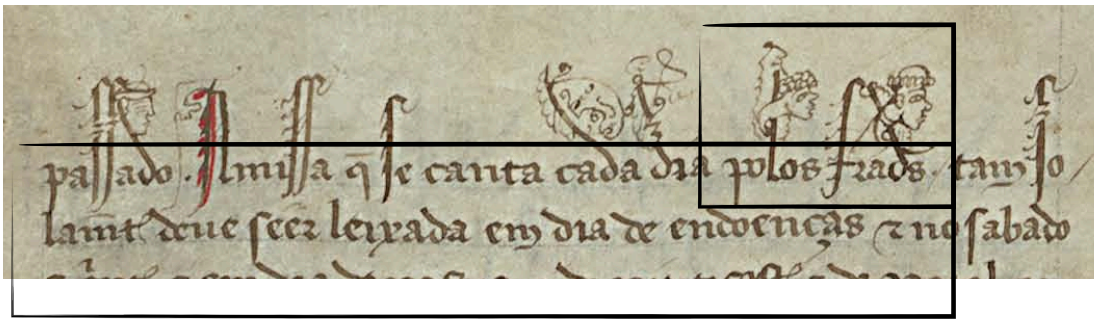 passado. A missa q̄ se canta cada dia polos frad̄s. tam so/
lam̄t deue seer leixada em dia de endoenças ⁊ no sabado